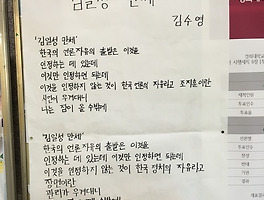 김일성 만세
김수영
'김일성 만세'
한국의 언론자유의 출발은 이것을
인정하는 데 있는데
이것만 인정하면 되는데
이것을 인정하지 않는 것이 한국 언론의 자유라고 조지훈이란
시인이 우겨대니
나는 잠이 올 수밖에
'김일성 만세'
한국의 언론자유의 출발은 이것을
인정하는 데 있는데 이것만 인정하면 되는데
이것을 인정하지 않는 것이 한국 정치의 자유라고
장면이란
관리가 우겨대니